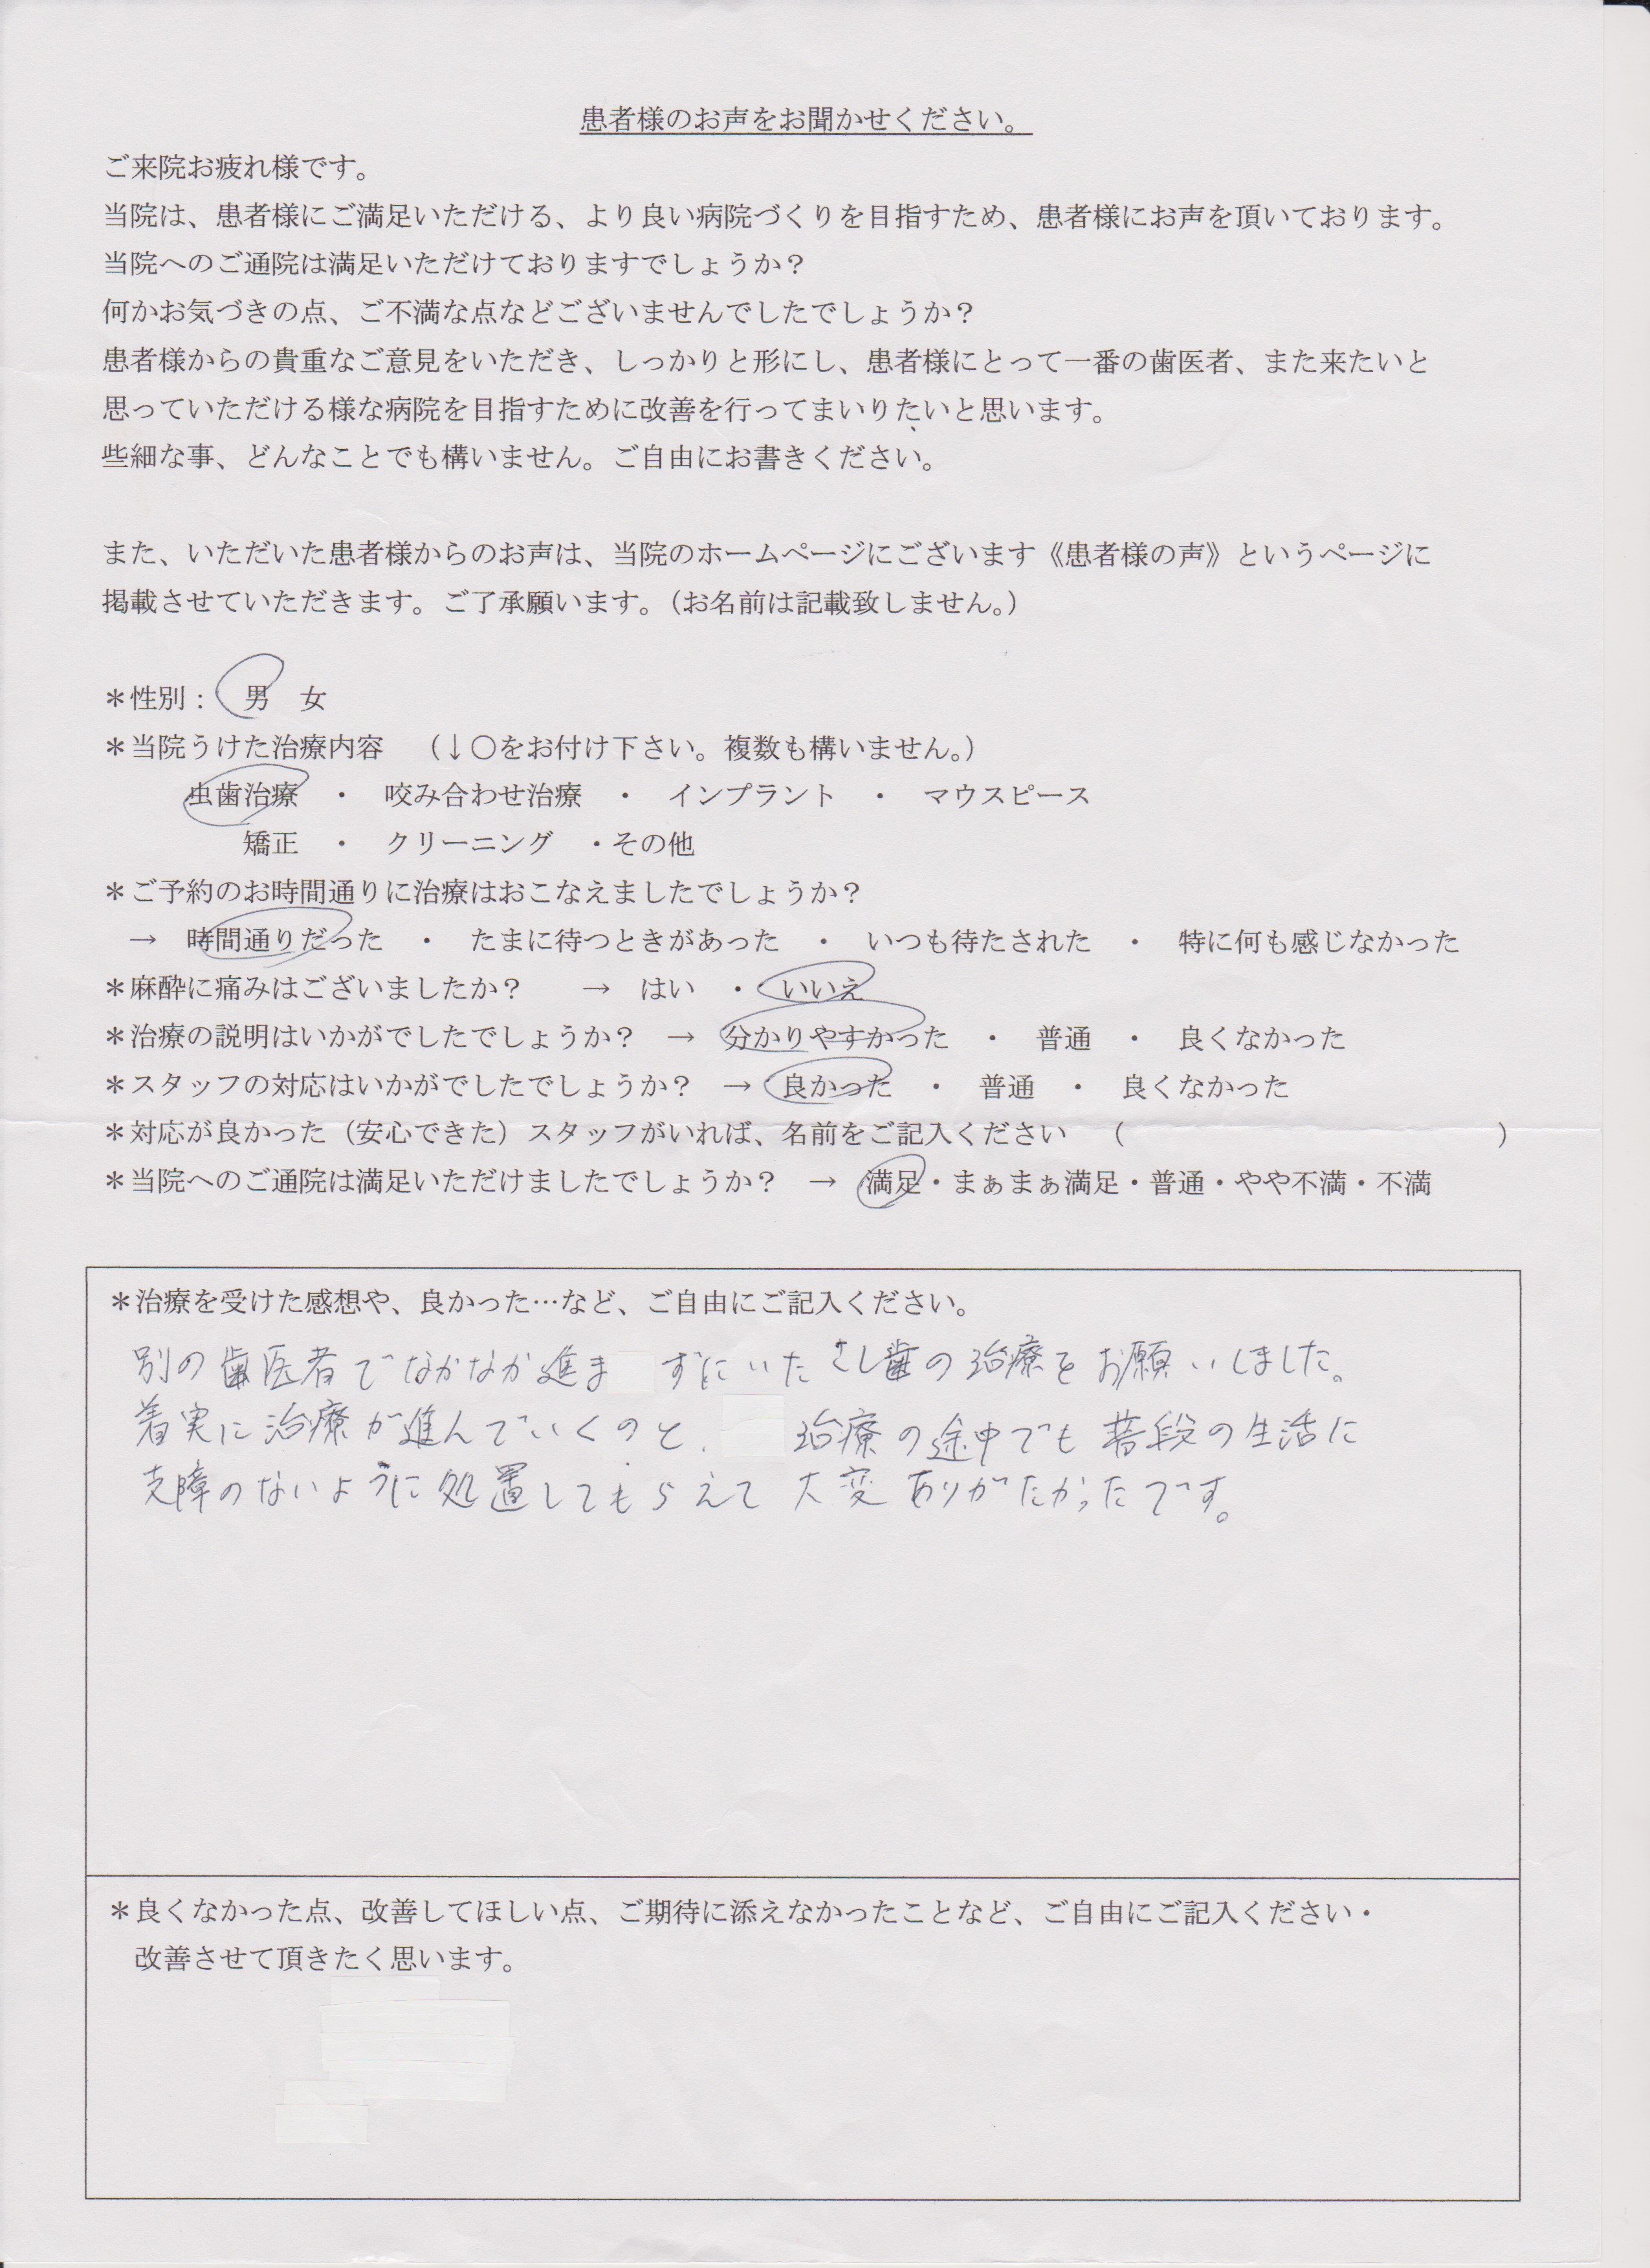 患者様のお声をお聞かせください。
ご来院お疲れ様です。
当院は、患者様にご満足いただける、より良い病院づくりを目指すため、患者様にお声を頂いております。
当院へのご通院は満足いただけておりますでしょうか？
何かお気づきの点、ご不満な点などございませんでしたでしょうか？
患者様からの貴重なご意見をいただき、しっかりと形にし、患者様にとって一番の歯医者、また来たいと
思っていただける様な病院を目指すために改善を行ってまいりたいと思います。
些細な事、どんなことでも構いません。ご自由にお書きください。
また、いただいた患者様からのお声は、当院のホームページにございます《患者様の声》というページに
掲載させていただきます。ご了承願います。（お名前は記載致しません。）
＊性別： 男 女
＊当院うけた治療内容 （↓○をお付け下さい。複数も構いません。）
虫歯治療 ・ 咬み合わせ治療 ・ インプラント ・ マウスピース
矯正 ・ クリーニング ・その他
＊ご予約のお時間通りに治療はおこなえましたでしょうか？
→ 時間通りだった ・ たまに待つときがあった ・ いつも待たされた ・ 特に何も感じなかった
＊麻酔に痛みはございましたか？ → はい ・ いいえ
＊治療の説明はいかがでしたでしょうか？ → 分かりやすかった ・ 普通 ・ 良くなかった
＊スタッフの対応はいかがでしたでしょうか？ → 良かった ・ 普通 ・ 良くなかった
＊対応が良かった（安心できた）スタッフがいれば、名前をご記入ください （ ）
＊当院へのご通院は満足いただけましたでしょうか？ → 満足・まぁまぁ満足・普通・やや不満・不満
＊治療を受けた感想や、良かった…など、ご自由にご記入ください。
別の歯医者でなかなか進ま ずにいたさし歯の治療をお願いしました。
着実に治療が進んでいくのと、 治療の途中でも普段の生活に
支障のないように処置してもらえて大変ありがたかったです。
＊良くなかった点、改善してほしい点、ご期待に添えなかったことなど、ご自由にご記入ください・
改善させて頂きたく思います。